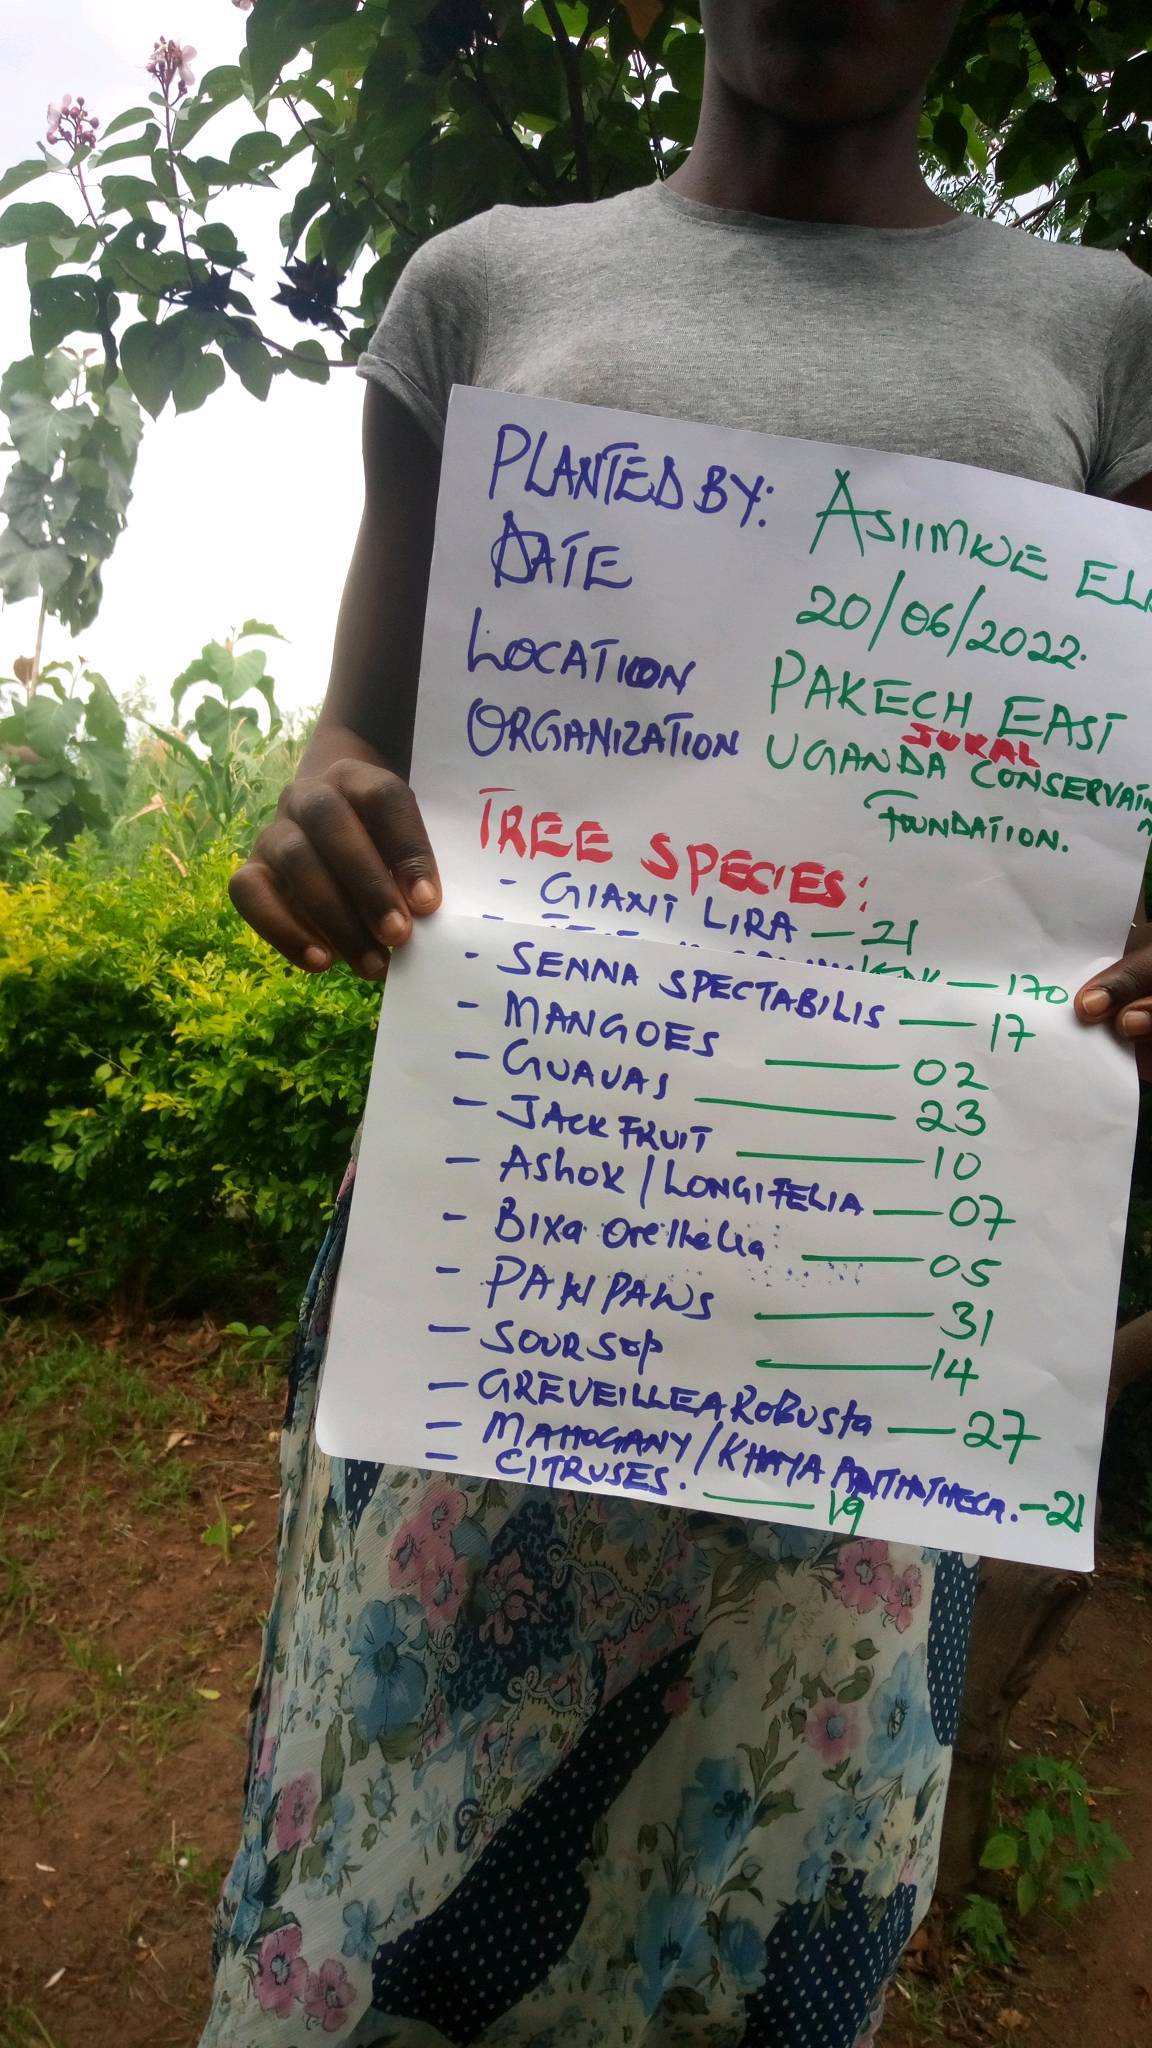 PLANTED BY: ASIIMWE
DATE 20/06/2022.
LOCATION PAKECH EAST
JUKAL
ORGANIZATION UGANDA
FOUNDATION.
TREE SPECIES:
- GIANT LIRA - 21
- 170
- SENNA SPECTABILIS - 17
- MANGOES - 02
- GUAVAS - 23
- JACK FRUIT - 10
- ASHOK / LONGIFELIA - 07
- Bixa - 05
- PAWPAWS - 31
- SOURSOP - 14
- GREVEILLEA ROBUSta - 27
- MAHOGANY / KHAYA - 21
- CITRUSES. - 19